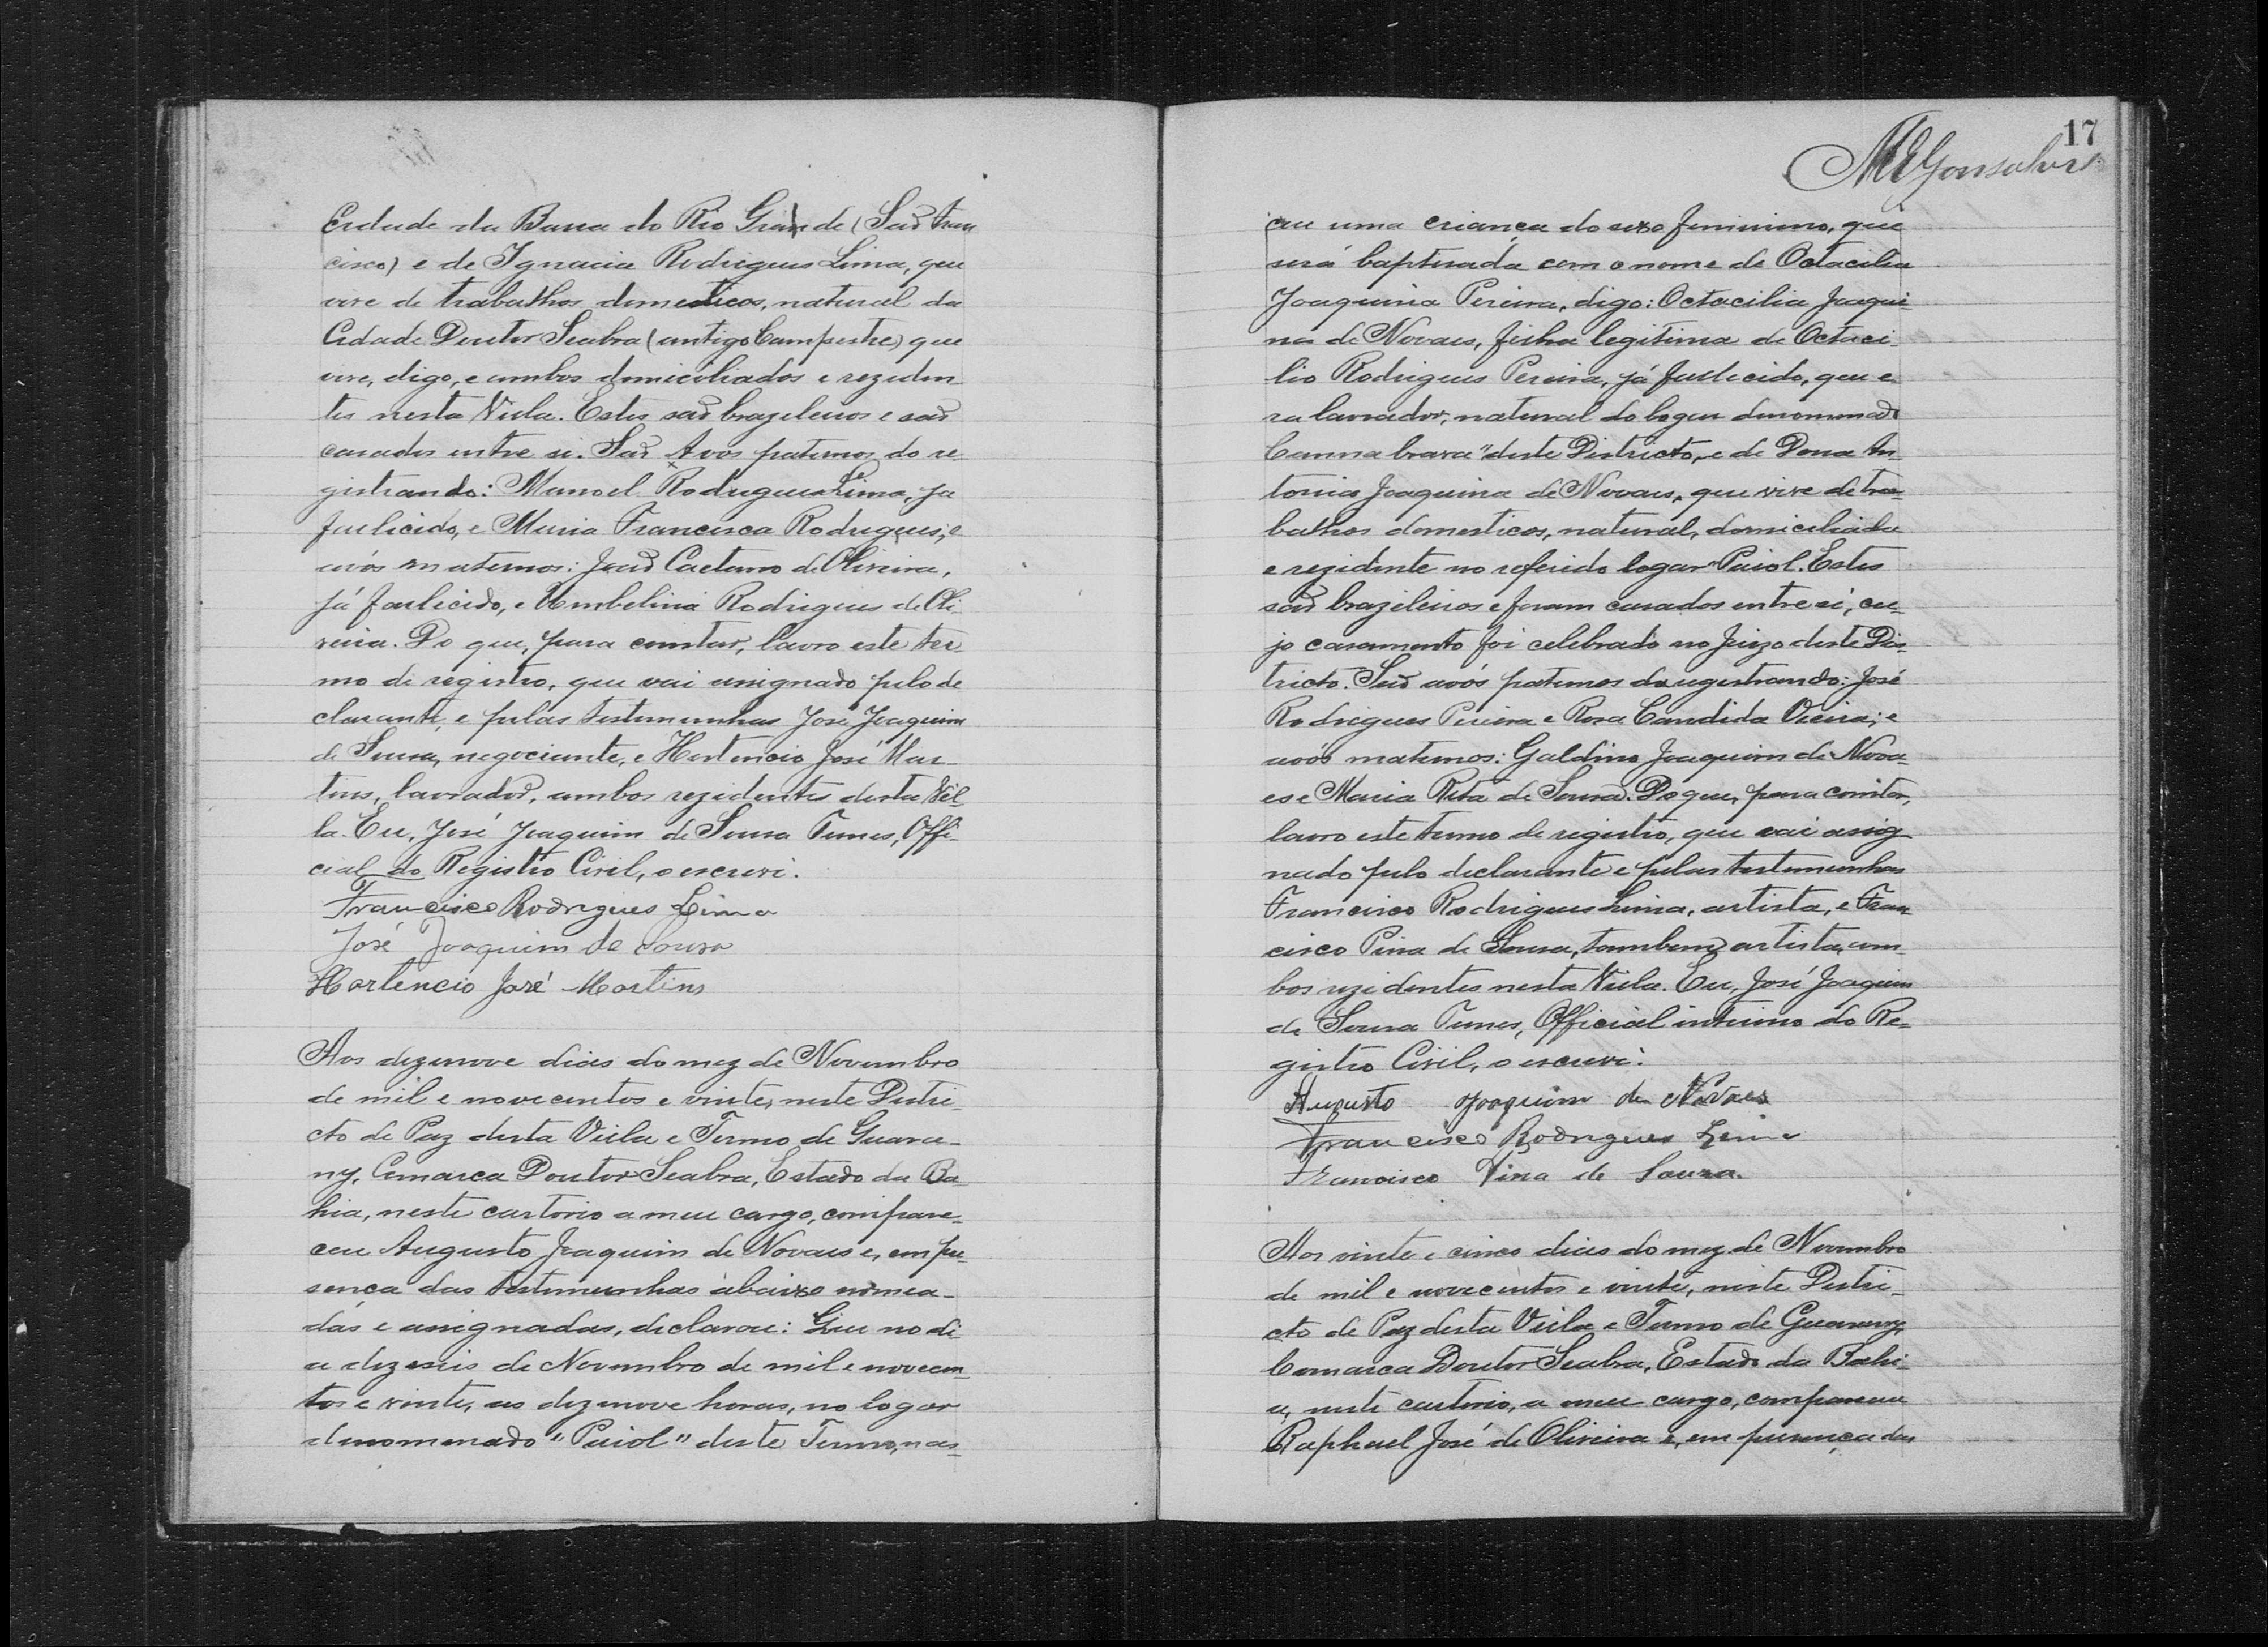 Cidade da Barra do Rio Grande (São Fran
cisco) e de Ignacia Rodrigues Lima, que
vive de trabalhos domesticos, natural da
Cidade Doutor Seabra (antigo Campestre) que
vive, digo, e ambos domiciliados e reziden
tes nesta Villa. Estes são brazileiros e são
casados entre si. São Avós paternos do re-
gistrando: Manoel Rodrigues Lima, já
fallecido, e Maria Francisca Rodrigues; e
avós maternos: João Caetano de Oliveira,
já fallecido, e Umbelina Rodrigues de Oli-
veira. Do que, para constar, lavro este ter-
mo de registro, que vai assignado pelo de
clarante, e pelas testemunhas José Joaquim
de Sousa, negociante, e Hortencio José Mar-
tins, lavrador, ambos rezidentes desta Vil
la. Eu, José Joaquim de Sousa Tunes, Offi-
cial do Registro Civil, o escrevi.
Francisco Rodrigues Lima
José Joaquim de Souza
Hortencio José Martins
Aos dezenove dias do mez de Novembro
de mil e novecentos e vinte, neste Distri-
cto de Paz desta Villa e Termo de Guara-
ny, Comarca Doutor Seabra, Estado da Ba-
hia, neste cartorio a meu cargo, compare-
ceu Augusto Joaquim de Novaes e, em pre-
sença das testemunhas abaixo nomea-
das e assignadas, declarou: Que no di-
a dezeseis de Novembro de mil e novecen-
tos e vinte, as dezenove horas, no logar
denomenado "Paiol" deste Termo, nas-
17
MEGonsalves
ceu uma criança do sexo feminino, que
será baptisada com o nome de Octacilia
Joaquina Pereira, digo: Octacilia Joaqui-
na de Novaes, filha legitima de Octaci-
lio Rodrigues Pereira, já fallecido, que e-
ra lavrador, natural do logar denomenado
Canna brava" deste Districto, e de Dona An
tonia Joaquina de Novaes, que vive de tra-
balhos domesticos, natural, domiciliada
e rezidente no referido logar "Paiol. Estes
são brazileiros e foram casados entre si, cu-
jo casamento foi celebrado no Juizo deste Dis-
tricto. São avós paternos da registrando: José
Rodrigues Pereira e Rosa Candida Vieira; e
avós maternos: Galdino Joaquim de Nova-
es e Maria Rita de Sousa. Do que, para constar,
lavro este termo de registro, que vai assig-
nado pelo declarante e pelas testemunhas
Francisco Rodrigues Lima, artista, e Fran
cisco Pina de Sousa, tambem artista, am-
bos rezidentes nesta Villa. Eu, José Joaquim
de Sousa Tunes, Official interino do Re-
gistro Civil, o escrevi.
Augusto Joaquim de Novaes
Francisco Rodrigues Lima
Francisco Pina de Souza.
Aos vinte e cinco dias do mez de Novembro
de mil e novecentos e vinte, neste Distri-
cto de Paz desta Villa e Termo de Guarany,
Comarca Doutor Seabra, Estado da Bahi-
a, neste cartorio, a meu cargo, compareceu
Raphael José de Oliveira e, em presença das